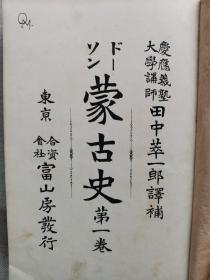 慶應義塾
大學講師
田中萃一郎譯補
ドーソン
蒙古史
第一巻
東京
合資
會社
冨山房發行